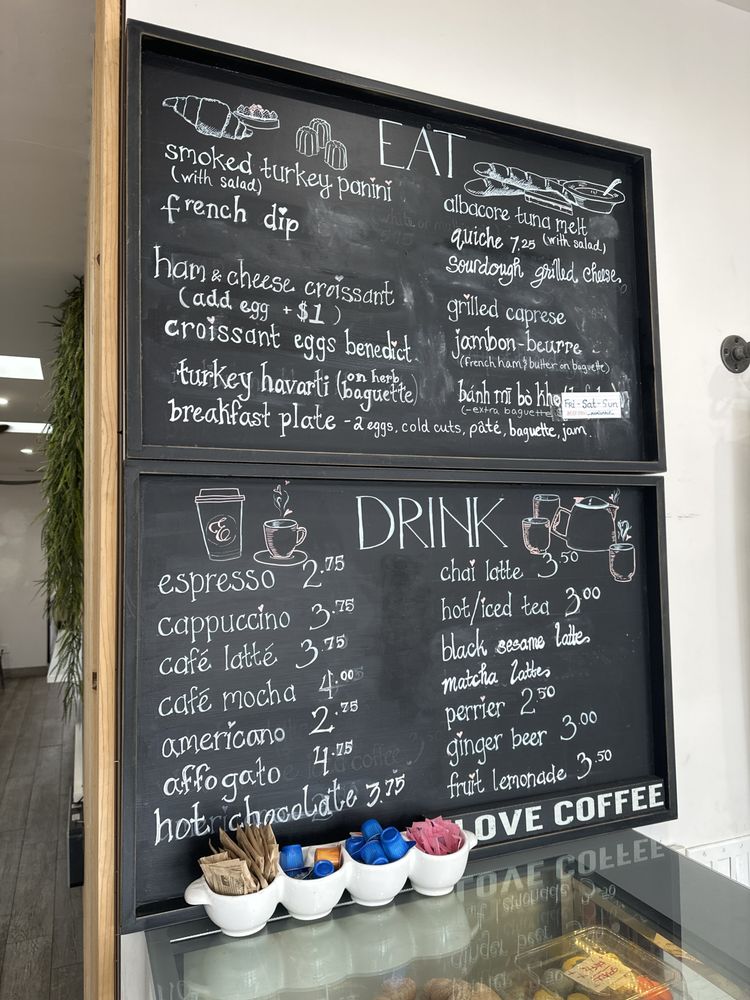 EAT
smoked turkey panini
(with salad)
french dip
ham & cheese croissant
(add egg + $1)
croissant eggs benedict
turkey havarti (on herb baguette)
breakfast plate - 2 eggs, cold cuts, pâté, baguette, jam
albacore tuna melt
quiche 7.25 (with salad)
Sourdough grilled cheese
grilled caprese
jambon-beurre
(french ham & butter on baguette)
bánh mì bò kho
(-extra baguette
Fri - Sat - Sun
DRINK
espresso 2.75
cappuccino 3.75
café latté 3.75
café mocha 4.00
americano 2.75
affogato 4.75
hot chocolate 3.75
chai latte 3.50
hot/iced tea 3.00
black sesame latte
matcha latte
perrier 2.50
ginger beer 3.00
fruit lemonade 3.50
LOVE COFFEE